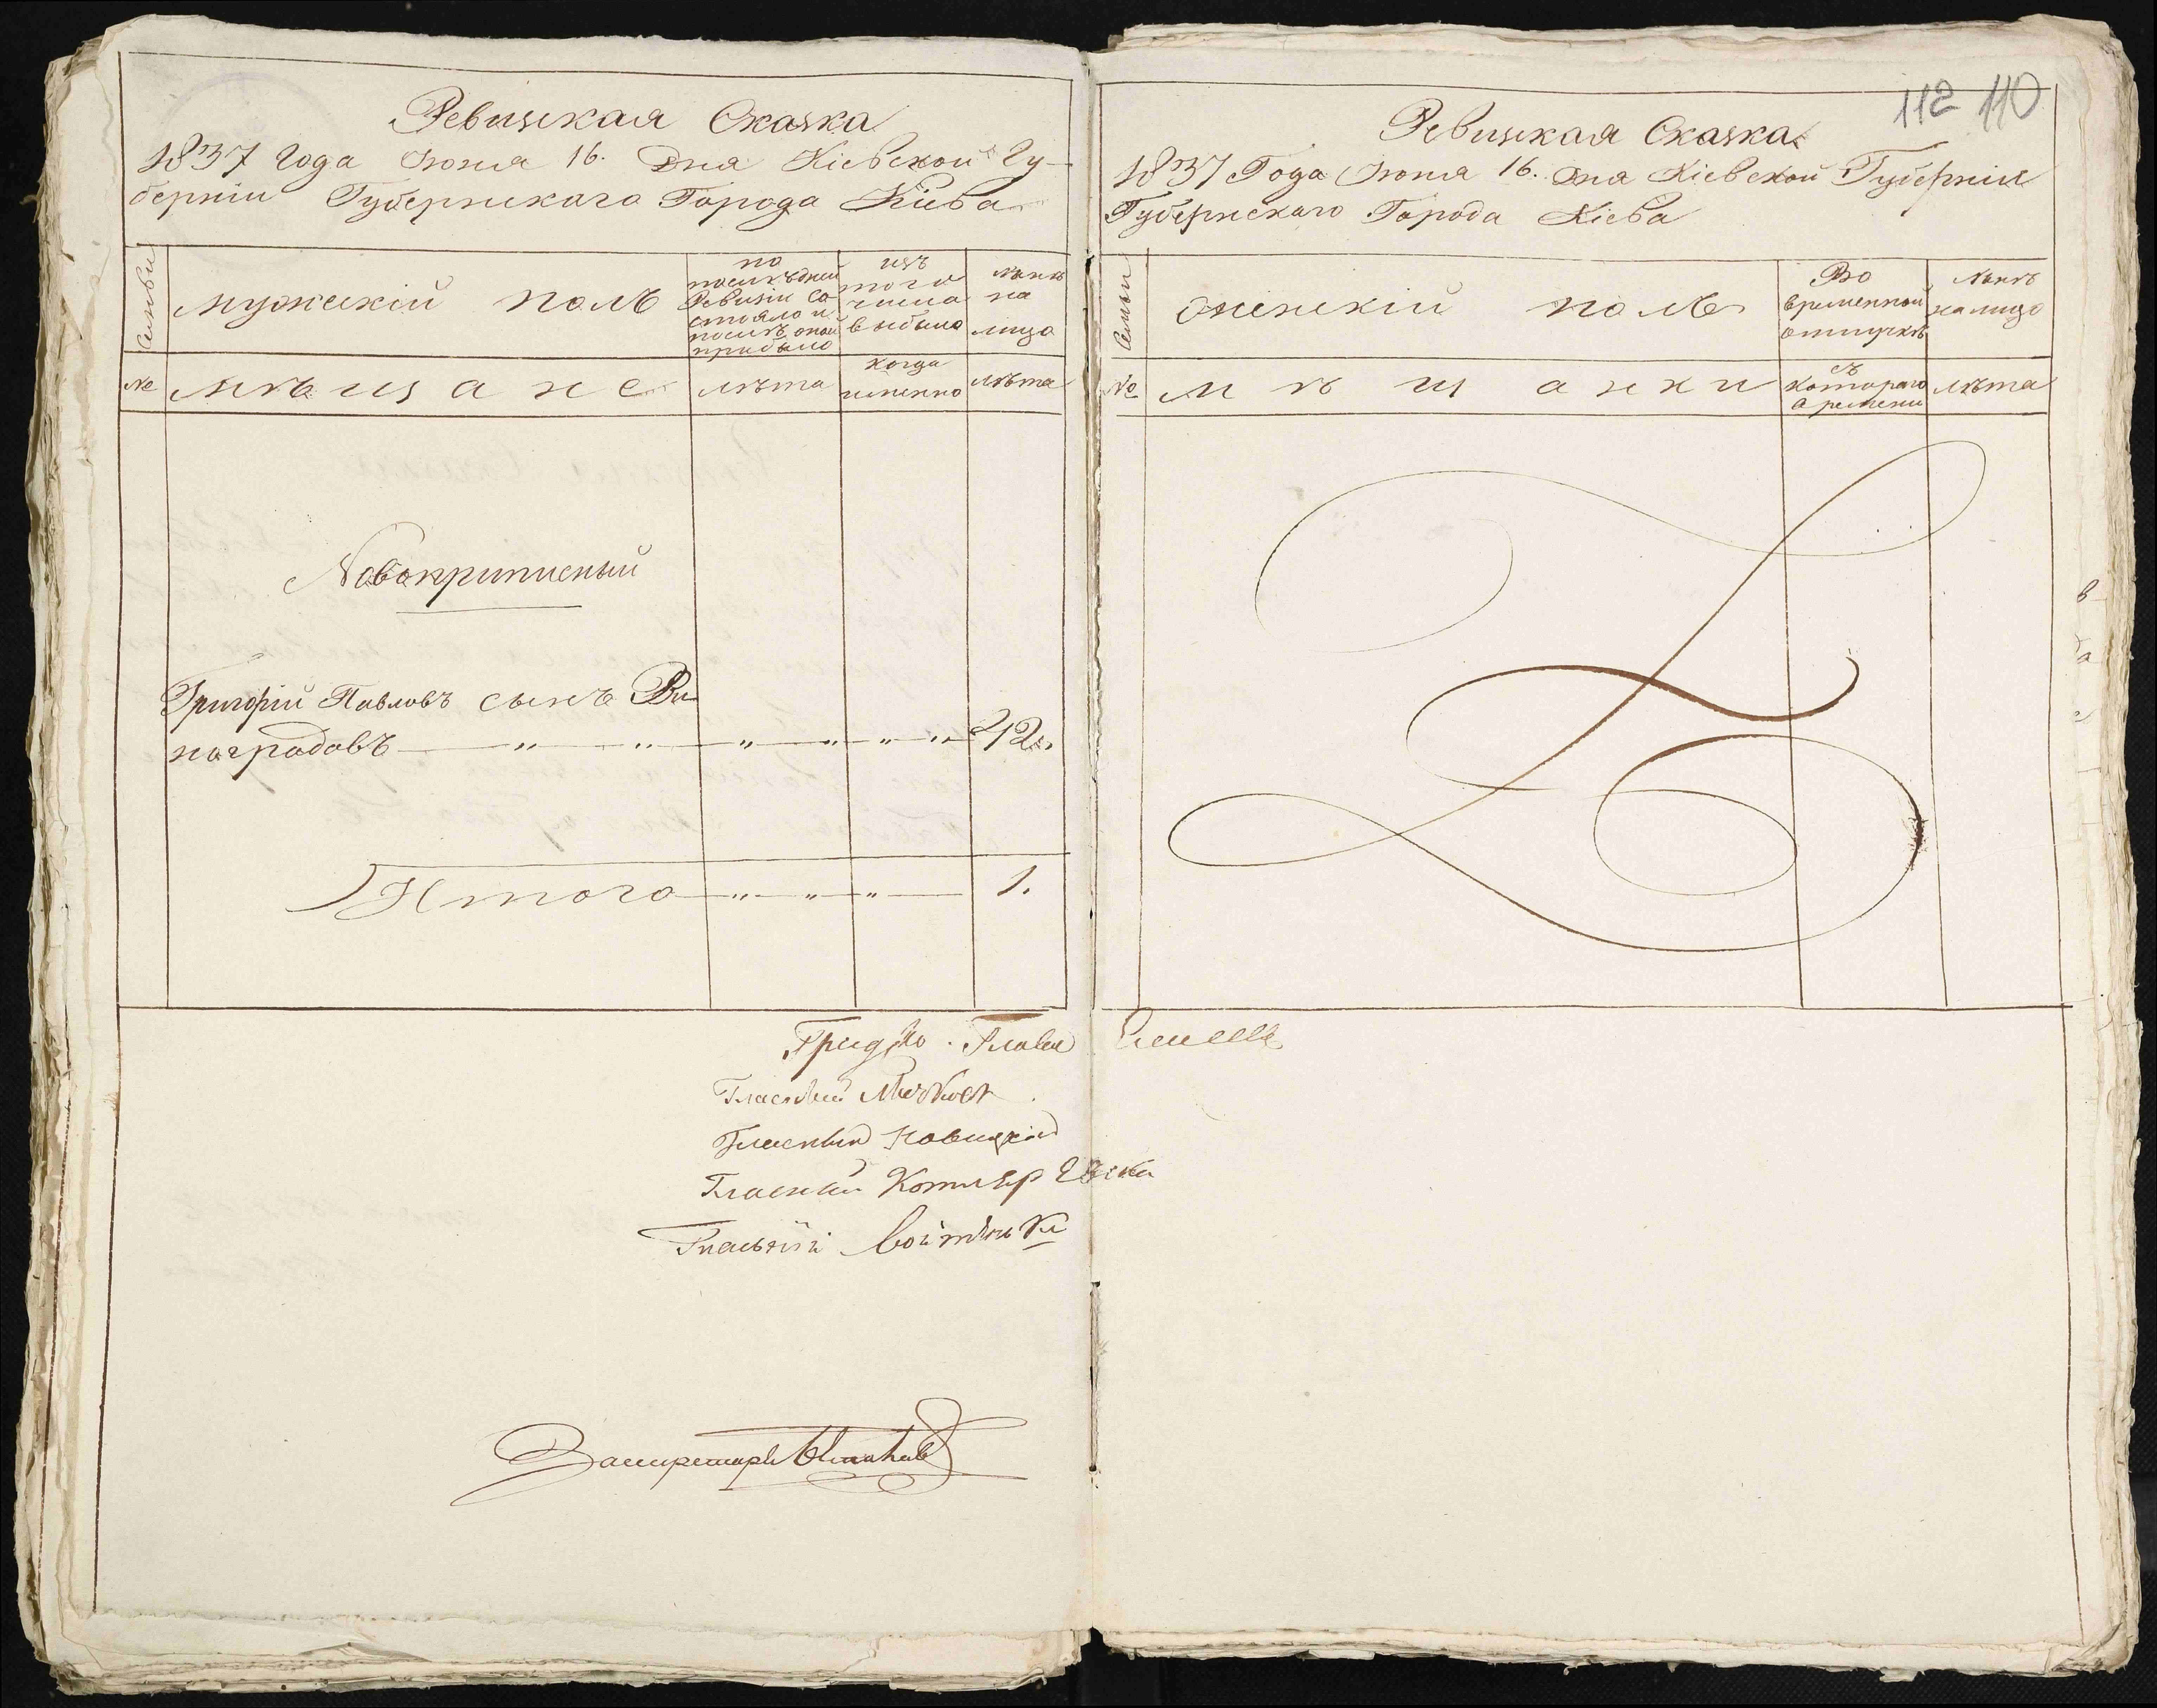 Ревизская Сказка
1837 Года Июня 16. Дня Кіевской Гу-
берніи Губернскаго Города Кіева
Семьи
мужескій полъ
по
последней
Ревизіи со-
стояло и
послѣ оной
прибыло
изъ
того
числа
выбыло
нынѣ
на
лицо
№
мѣщане
лѣта
когда
именно
лѣта
Новоприписный
Григорій Павловъ сынъ Ви
наградовъ — " — " — " — " — " — " — 42.
Итого — " — " — " — 1.
112 110
Ревизская Сказка
1837 Года Июня 16. Дня Кіевской Губерніи
Губернскаго Города Кіева
Семьи
женскій полъ
Во
временной
отлучкѣ
нынѣ
на лицо
№
мѣщанки
съ
котораго
времени
лѣта
Гласный
Гласный Новицкій
Гласный
Гласный